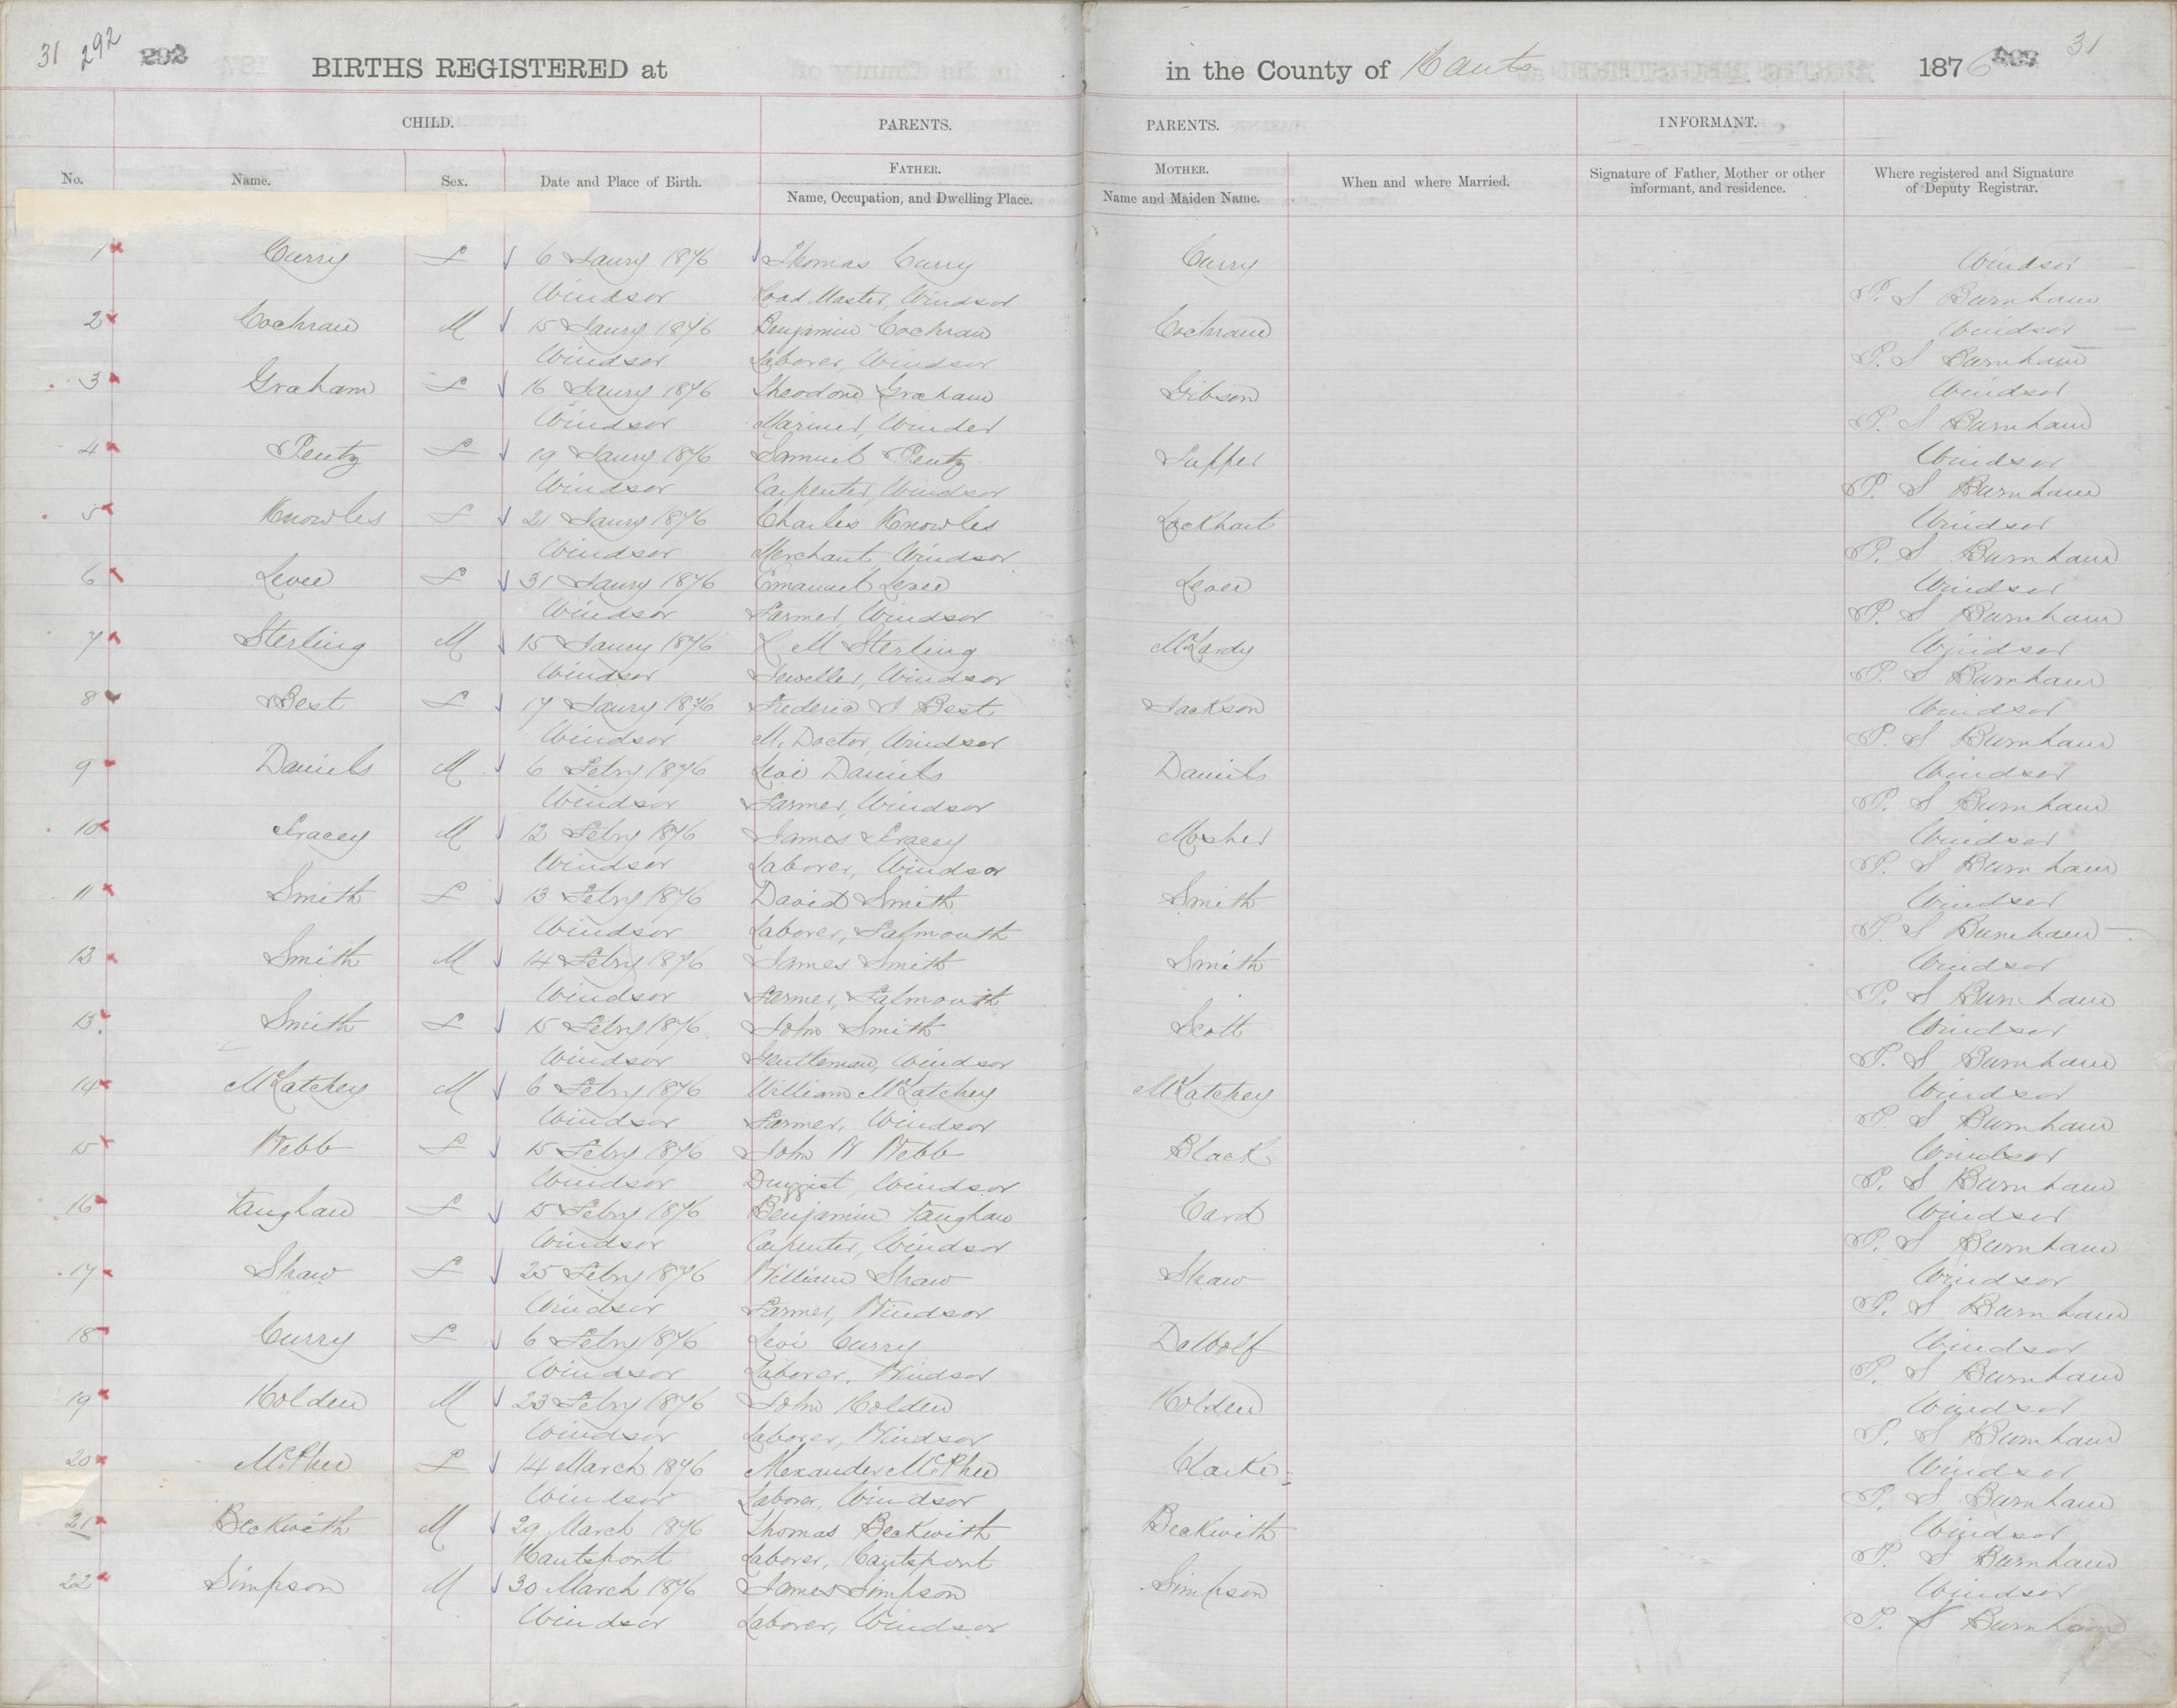 31 292 292
BIRTHS REGISTERED at in the County of Hants 1876 31
CHILD. PARENTS. PARENTS. INFORMANT.
No. Name. Sex. Date and Place of Birth. FATHER. Name, Occupation, and Dwelling Place. MOTHER. Name and Maiden Name. When and where Married. Signature of Father, Mother or other informant, and residence. Where registered and Signature of Deputy Registrar.
1 Curry F 6 Jaury 1876 Thomas Curry Curry Windsor
Windsor Road Master, Windsor P. S Burnham
2 Cochran M 15 Jaury 1876 Benjamin Cochran Cochran Windsor
Windsor Laborer, Windsor P. S Burnham
3 Graham F 16 Jaury 1876 Theodore Graham Gibson Windsor
Windsor Mariner, Windsor P. S Burnham
4 Pentz F 19 Jaury 1876 Samuel Pentz Windsor
Windsor Carpenter, Windsor P. S Burnham
5 Knowles F 21 Jaury 1876 Charles Knowles Lockhart Windsor
Windsor Merchant Windsor P. S Burnham
6 Levee F 31 Jaury 1876 Emanuel Levee Levee Windsor
Windsor Farmer, Windsor P. S Burnham
7 Sterling M 15 Jaury 1876 M Sterling Windsor
Windsor Jeweller, Windsor P. S Burnham
8 Best F 17 Jaury 1876 Frederic S Best Jackson Windsor
Windsor M. Doctor, Windsor P. S Burnham
9 Daniels M 6 Febry 1876 Levi Daniels Daniels Windsor
Windsor Farmer, Windsor P. S Burnham
10 Tracey M 12 Febry 1876 James Tracey Mosher Windsor
Windsor Laborer, Windsor P. S Burnham
11 Smith F 13 Febry 1876 David Smith Smith Windsor
Windsor Laborer, Falmouth P. S Burnham
12 Smith M 14 Febry 1876 James Smith Smith Windsor
Windsor Farmer, Falmouth P. S Burnham
13 Smith F 15 Febry 1876 John Smith Scott Windsor
Windsor Gentleman, Windsor P. S Burnham
14 McLatchey M 6 Febry 1876 William McLatchey McLatchey Windsor
Windsor Farmer, Windsor P. S Burnham
15 Webb F 15 Febry 1876 John W Webb Black Windsor
Windsor Druggist, Windsor P. S Burnham
16 Vaughan F 15 Febry 1876 Benjamin Vaughan Card Windsor
Windsor Carpenter, Windsor P. S Burnham
17 Shaw F 25 Febry 1876 William Shaw Shaw Windsor
Windsor Farmer, Windsor P. S Burnham
18 Curry F 6 Febry 1876 Levi Curry Windsor
Windsor Laborer, Windsor P. S Burnham
19 Holden M 23 Febry 1876 John Holden Holden Windsor
Windsor Laborer, Windsor P. S Burnham
20 McPhee F 14 March 1876 Alexander McPhee Clarke Windsor
Windsor Laborer, Windsor P. S Burnham
21 Beckwith M 29 March 1876 Thomas Beckwith Beckwith Windsor
Hantsport Laborer, Hantsport P. S Burnham
22 Simpson M 30 March 1876 James Simpson Simpson Windsor
Windsor Laborer, Windsor P. S Burnham